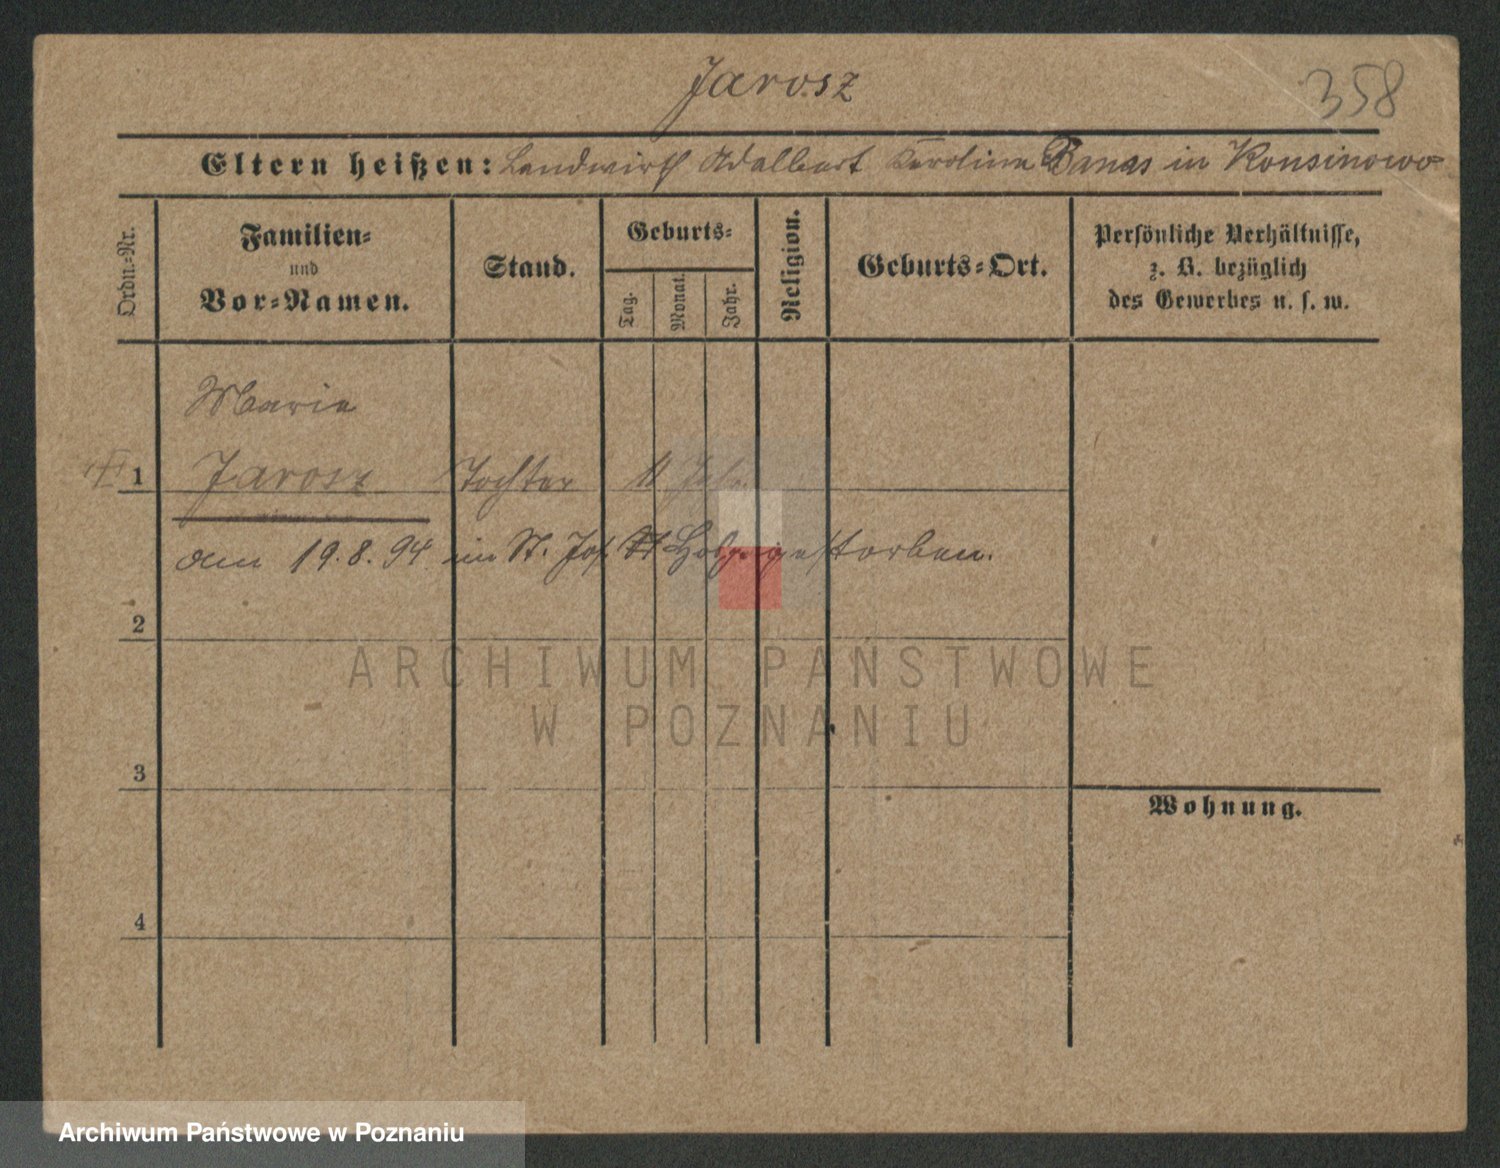 Jarosz
358
Eltern heißen: Landwirth Adalbert Karolina Banas in Konsinowo
Ordn.-Nr.
Familien-
und
Vor-Namen.
Stand.
Geburts-
Tag.
Monat.
Jahr.
Religion.
Geburts-Ort.
Persönliche Verhältnisse,
z. B. bezüglich
des Gewerbes u. s. w.
Maria
1 Jarosz Tochter 11 Jahr
am 19.8.94 im St. Jos. gestorben.
2
3
4
Wohnung.
ARCHIWUM PAŃSTWOWE
W POZNANIU
Archiwum Państwowe w Poznaniu